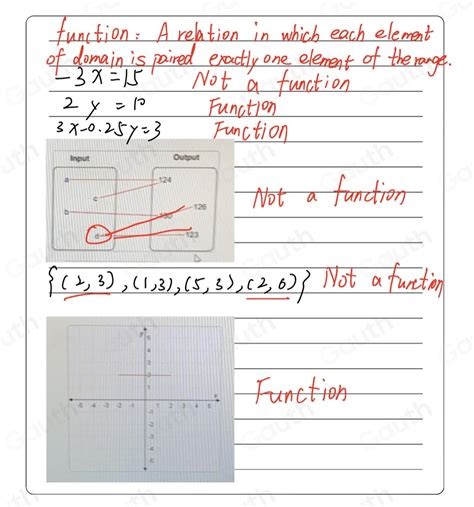 function: A relation in which each element
of domain is paired exactly one element of the range.
-3x=15 Not a function
2y=10 Function
3x-0.25y=3 Function
Input Output
a 124
c
126
b
d 123
Not a function
{(2,3),(1,3),(5,3),(2,0)} Not a function
y
5
4
3
2
1
-5 -4 -3 -2 -1 1 2 3 4 5 x
-1
-2
-3
-4
-5
Function
Gauth